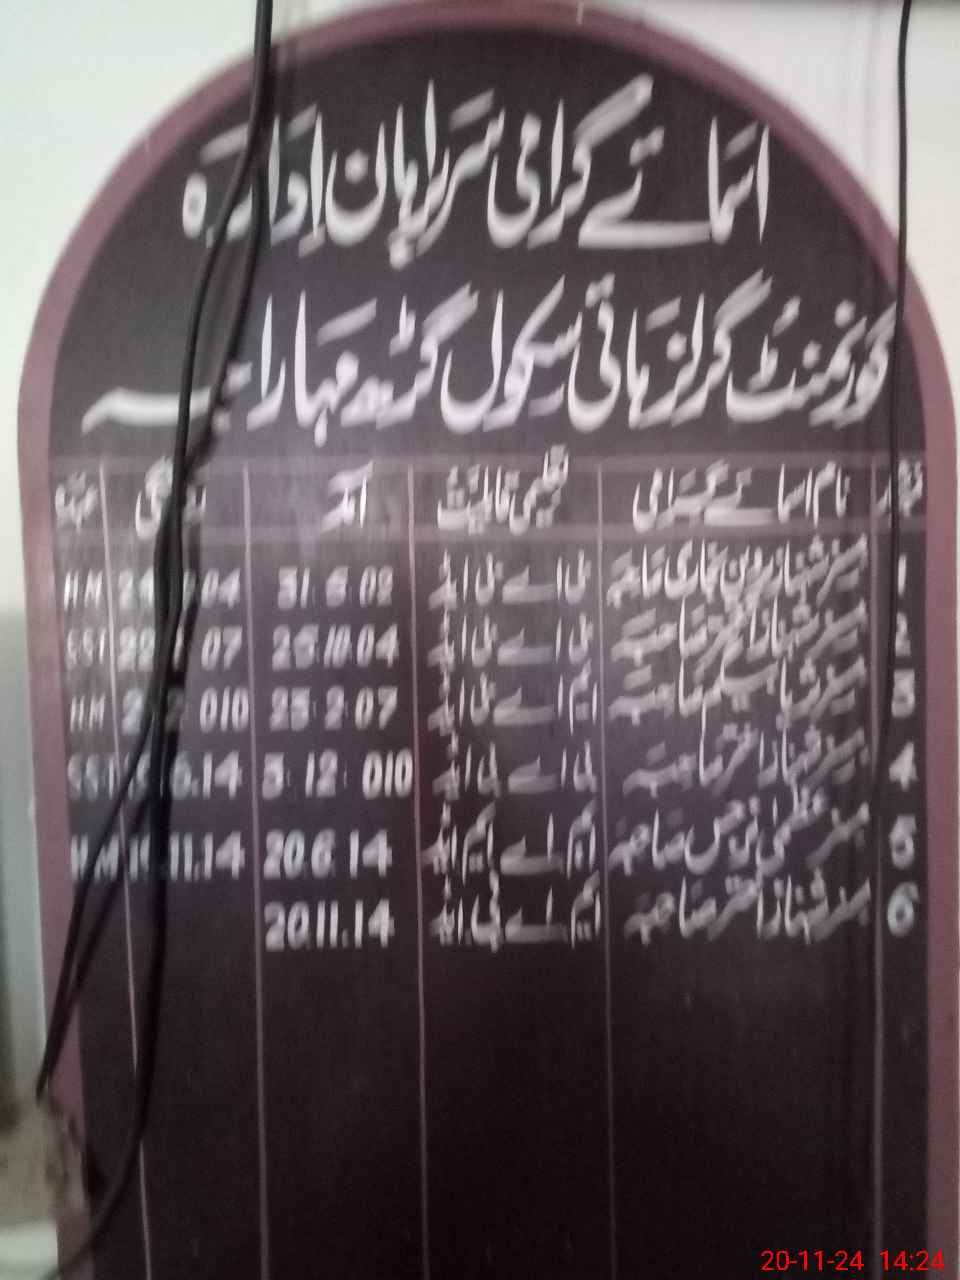 اسمائے گرامی سربراہان ادارہ
گورنمنٹ گرلز ہائی سکول گڑھ مہاراجہ
نمبر شمار نام اسمائے گرامی تعلیمی قابلیت آمد عہدہ
1 مسز شہناز پروین بخاری صاحبہ بی اے بی ایڈ 31.5.02 04 HM
2 مسز شہناز اختر صاحبہ بی اے بی ایڈ 25.10.04 22 07 SST
3 مسز صاحبہ ایم اے بی ایڈ 25.2.07 010 HM
4 مسز شہناز اختر صاحبہ بی اے بی ایڈ 5.12.010 6.14 SST
5 مسز عظمیٰ نرجس صاحبہ ایم اے ایم ایڈ 20.6.14 11.14 HM
6 مسز شہناز اختر صاحبہ ایم اے بی ایڈ 20.11.14
20-11-24 14:24